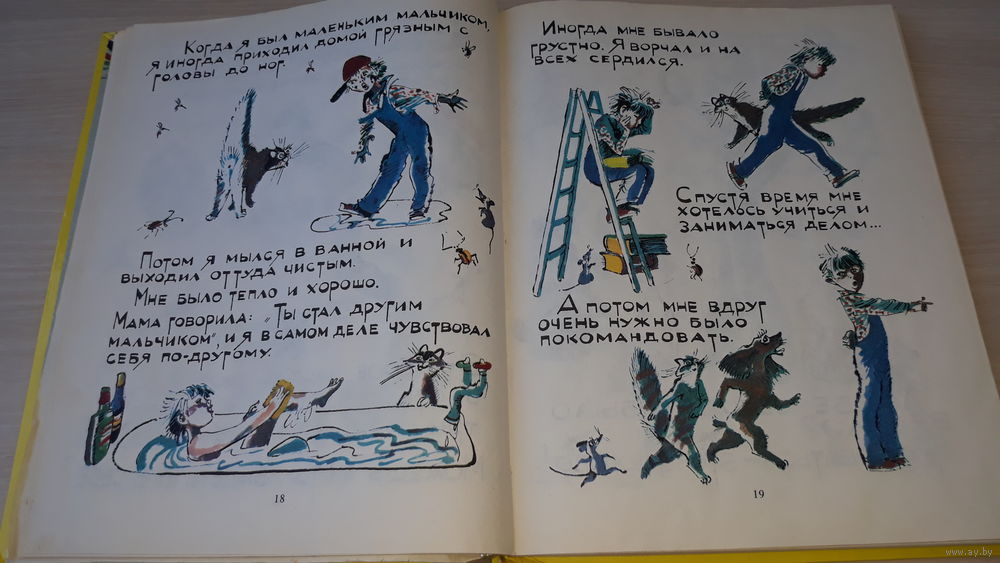 Когда я был маленьким мальчиком,
я иногда приходил домой грязным с
головы до ног.
Потом я мылся в ванной и
выходил оттуда чистым.
Мне было тепло и хорошо.
Мама говорила: „Ты стал другим
мальчиком", и я в самом деле чувствовал
себя по-другому.
18
Иногда мне бывало
грустно. Я ворчал и на
всех сердился.
Спустя время мне
хотелось учиться и
заниматься делом...
А потом мне вдруг
очень нужно было
покомандовать.
19
www.ay.by